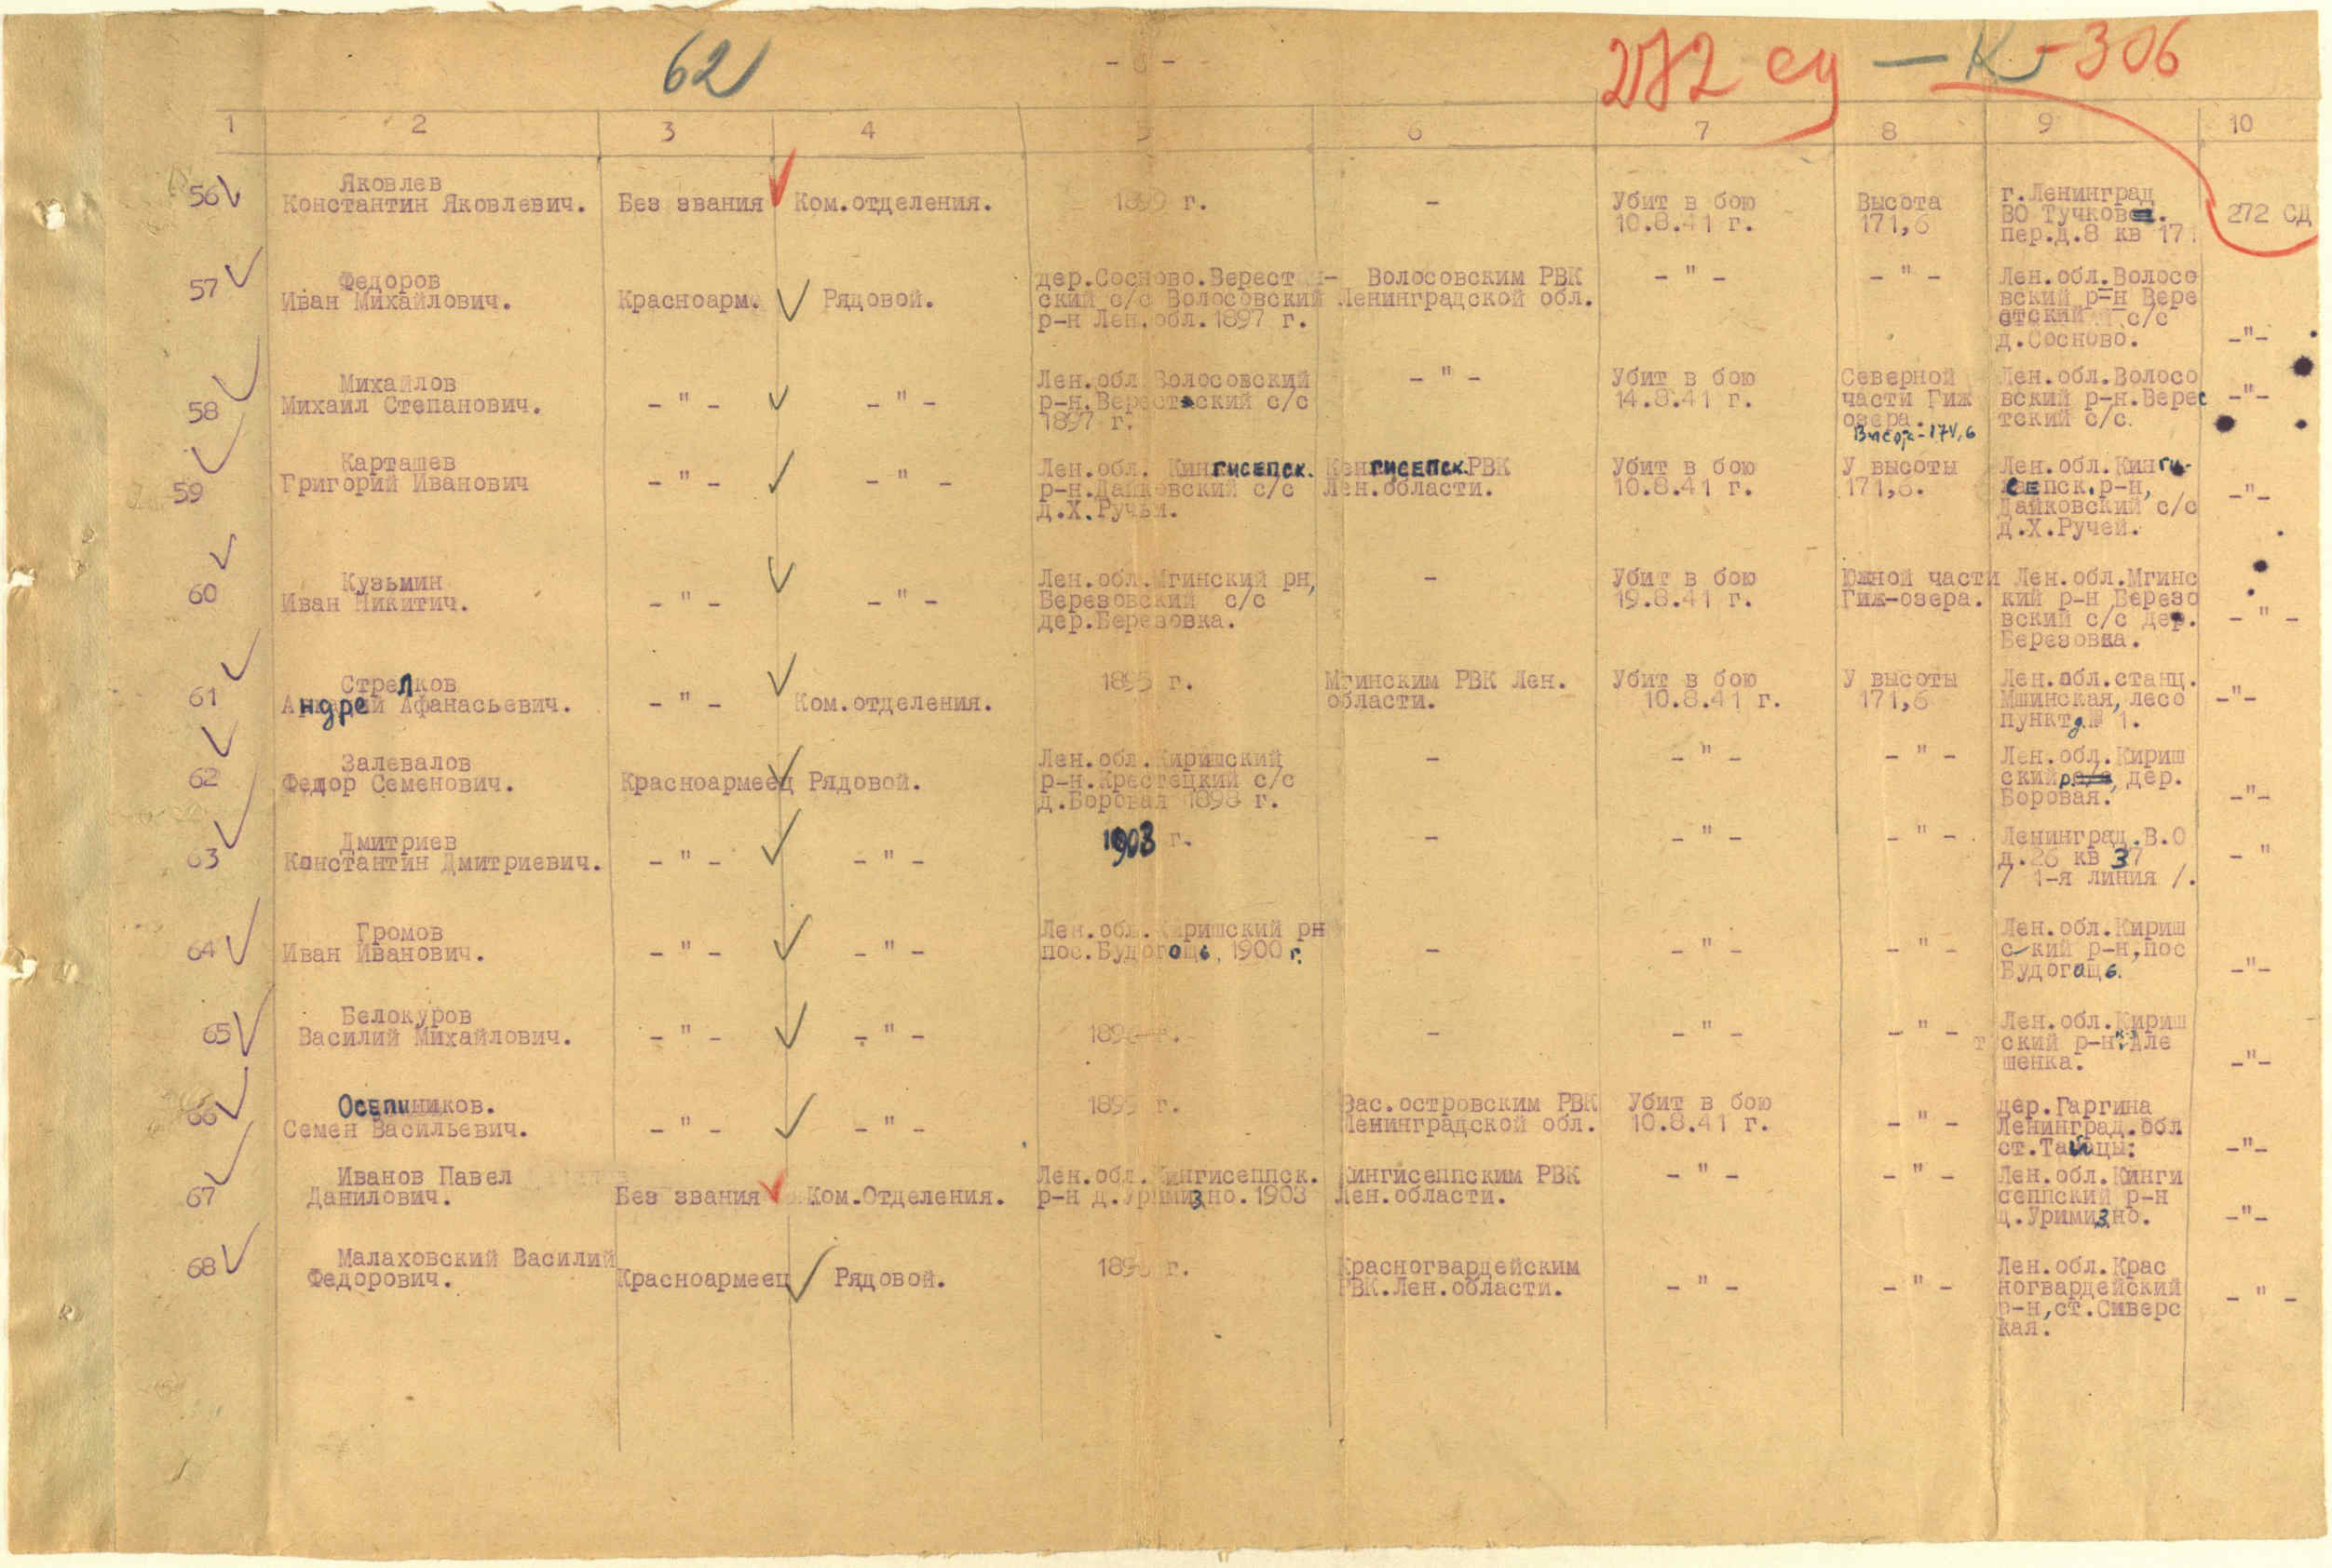 62
- 6 -
272 сд — К-306
1 2 3 4 5 6 7 8 9 10
56
Яковлев
Константин Яковлевич.
Без звания
Ком.отделения.
1899 г.
-
Убит в бою
10.8.41 г.
Высота
171,6
г.Ленинград
ВО Тучков
пер.д.8 кв 171
272 СД
57
Федоров
Иван Михайлович.
Красноарм.
Рядовой.
дер.Сосново.Верест -
ский с/с Волосовский
р-н Лен.обл.1897 г.
Волосовским РВК
Ленинградской обл.
- " -
- " -
Лен.обл.Волосо
вский р-н Вере
стский с/с
д.Сосново.
-"-
58
Михайлов
Михаил Степанович.
- " -
- " -
Лен.обл.Волосовский
р-н.Верестский с/с
1897 г.
- " -
Убит в бою
14.8.41 г.
Северной
части Гиж
озера.
Высот-174,6
Лен.обл.Волосо
вский р-н.Верес
тский с/с.
-"-
59
Карташев
Григорий Иванович
- " -
- " -
Лен.обл. Кингисепск.
р-н.Дайковский с/с
д.Х.Ручьи.
Кенгисепск.РВК
Лен.области.
Убит в бою
10.8.41 г.
У высоты
171,6.
Лен.обл.Кинги-
сепск.р-н,
Дайковский с/с
д.Х.Ручей.
-"-
60
Кузьмин
Иван Никитич.
- " -
- " -
Лен.обл.Мгинский рн,
Березовский с/с
дер.Березовка.
-
Убит в бою
19.8.41 г.
Южной части
Гиж-озера.
Лен.обл.Мгинс
кий р-н Березо
вский с/с дер.
Березовка.
- " -
61
Стрелков
Андрей Афанасьевич.
- " -
Ком.отделения.
1895 г.
Мгинским РВК Лен.
области.
Убит в бою
10.8.41 г.
У высоты
171,6
Лен.обл.станц.
Мшинская, лесо
пункт д.№ 1.
-"-
62
Залевалов
Федор Семенович.
Красноармеец
Рядовой.
Лен.обл.Киришский
р-н.Крестецкий с/с
д.Боровая 1898 г.
-
- " -
- " -
Лен.обл.Кириш
ский р, дер.
Боровая.
-"-
63
Дмитриев
Константин Дмитриевич.
- " -
- " -
1903 г.
-
- " -
- " -
Ленинград.В.О
д.26 кв 37
/ 1-я линия /.
- "
64
Громов
Иван Иванович.
- " -
- " -
Лен.обл.Киришский рн
пос.Будогощь, 1900 г.
-
- " -
- " -
Лен.обл.Кириш
ский р-н,пос
Будогощь.
-"-
65
Белокуров
Василий Михайлович.
- " -
- " -
г.
-
- " -
- " -
Лен.обл.Кириш
ский р-н Але
шенка.
-"-
66
Осепиников.
Семен Васильевич.
- " -
- " -
1895 г.
Вас.островским РВК
Ленинградской обл.
Убит в бою
10.8.41 г.
- " -
дер.Гаргина
Ленинград.обл
ст.Тайцы:
-"-
67
Иванов Павел
Данилович.
Без звания
Ком.Отделения.
Лен.обл.Кингисеппск.
р-н д.Уримизно.1903
Кингисеппским РВК
Лен.области.
- " -
- " -
Лен.обл.Кинги
сеппский р-н
д.Уримизно.
-"-
68
Малаховский Василий
Федорович.
Красноармеец
Рядовой.
г.
Красногвардейским
РВК.Лен.области.
- " -
- " -
Лен.обл.Крас
ногвардейский
р-н,ст.Сиверс
кая.
- " -